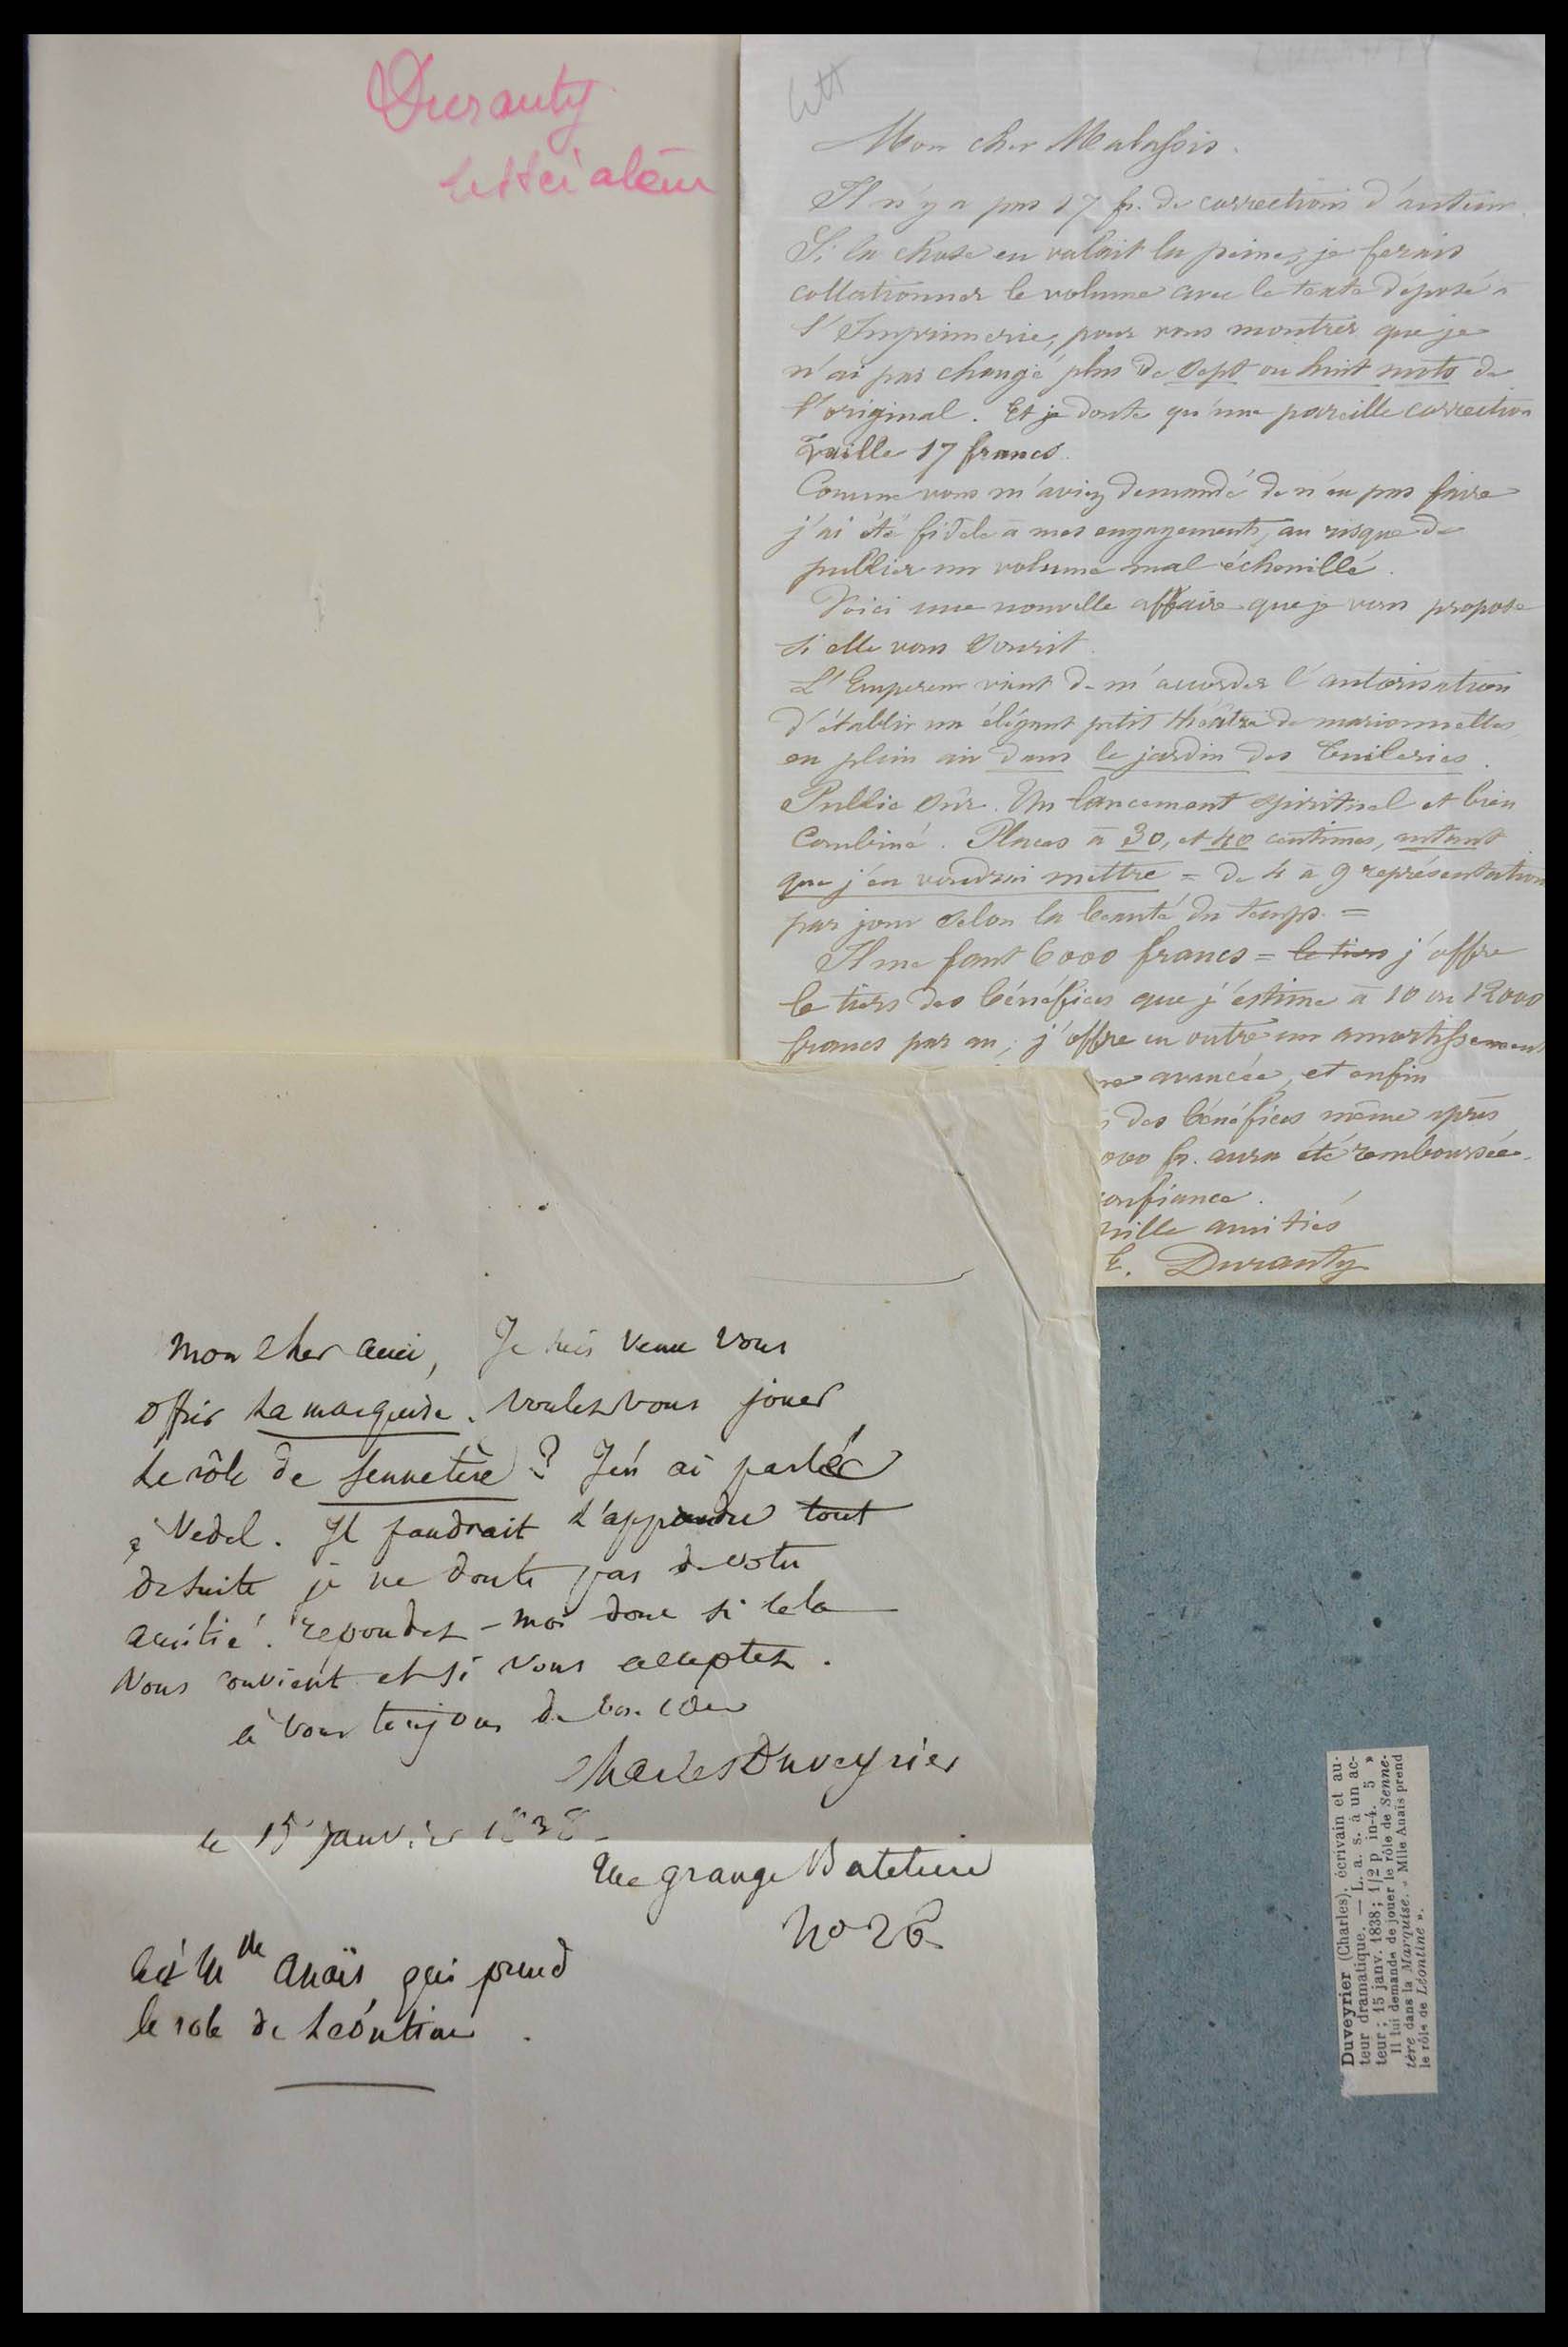 Duranty
Littérateur
litt
Mon cher Malassis.
Il n'y a pas 17 fr. de corrections d'auteur.
Si la chose en valait la peine, je ferais
collationner le volume avec le texte déposé à
l'Imprimerie, pour vous montrer que je
n'ai pas changé plus de sept ou huit mots de
l'original. Et je doute qu'une pareille correction
vaille 17 francs.
Comme vous m'aviez demandé de n'en pas faire
j'ai été fidele à mes engagements, au risque de
publier un volume mal échenillé.
Voici une nouvelle affaire que je vous propose
si elle vous sourit.
L'Empereur vient de m'accorder l'autorisation
d'établir un élégant petit théâtre de marionnettes,
en plein air dans le jardin des Tuileries.
Public sûr. Un lancement spirituel et bien
combiné. Places à 30, et 40 centimes, autant
que j'en voudrai mettre = de 4 à 9 représentation
par jour selon la beauté du temps. =
Il me faut 6000 francs = le tiers j'offre
le tiers des bénéfices que j'estime à 10 ou 12000
francs par an; j'offre en outre un amortissement
me avancée, et enfin
s des bénéfices même après
000 fr. aura été remboursée.
confiance.
mille amitiés
E. Duranty
Mon cher ami, Je suis venu vous
offrir La marquise. voulez vous jouer
Le rôle de Sennetère ? J'en ai parlé
à Vedel. Il faudrait l'apprendre tout
de suite je ne doute pas de votre
amitié. repondez-moi donc si cela
vous convient et si vous acceptez.
à vous toujours de bon cœur
Charles Duveyrier
le 15 janvier 1838
rue grange Bateliere
no 26
C'est Mlle Anaïs qui prend
le role de Léontine.
Duveyrier (Charles), écrivain et au-
teur dramatique. — L. a. s. à un ac-
teur ; 15 janv. 1838 ; 1/2 p in-4. 5 »
Il lui demande de jouer le rôle de Senne-
tère dans la Marquise. « Mlle Anaïs prend
le rôle de Léontine ».